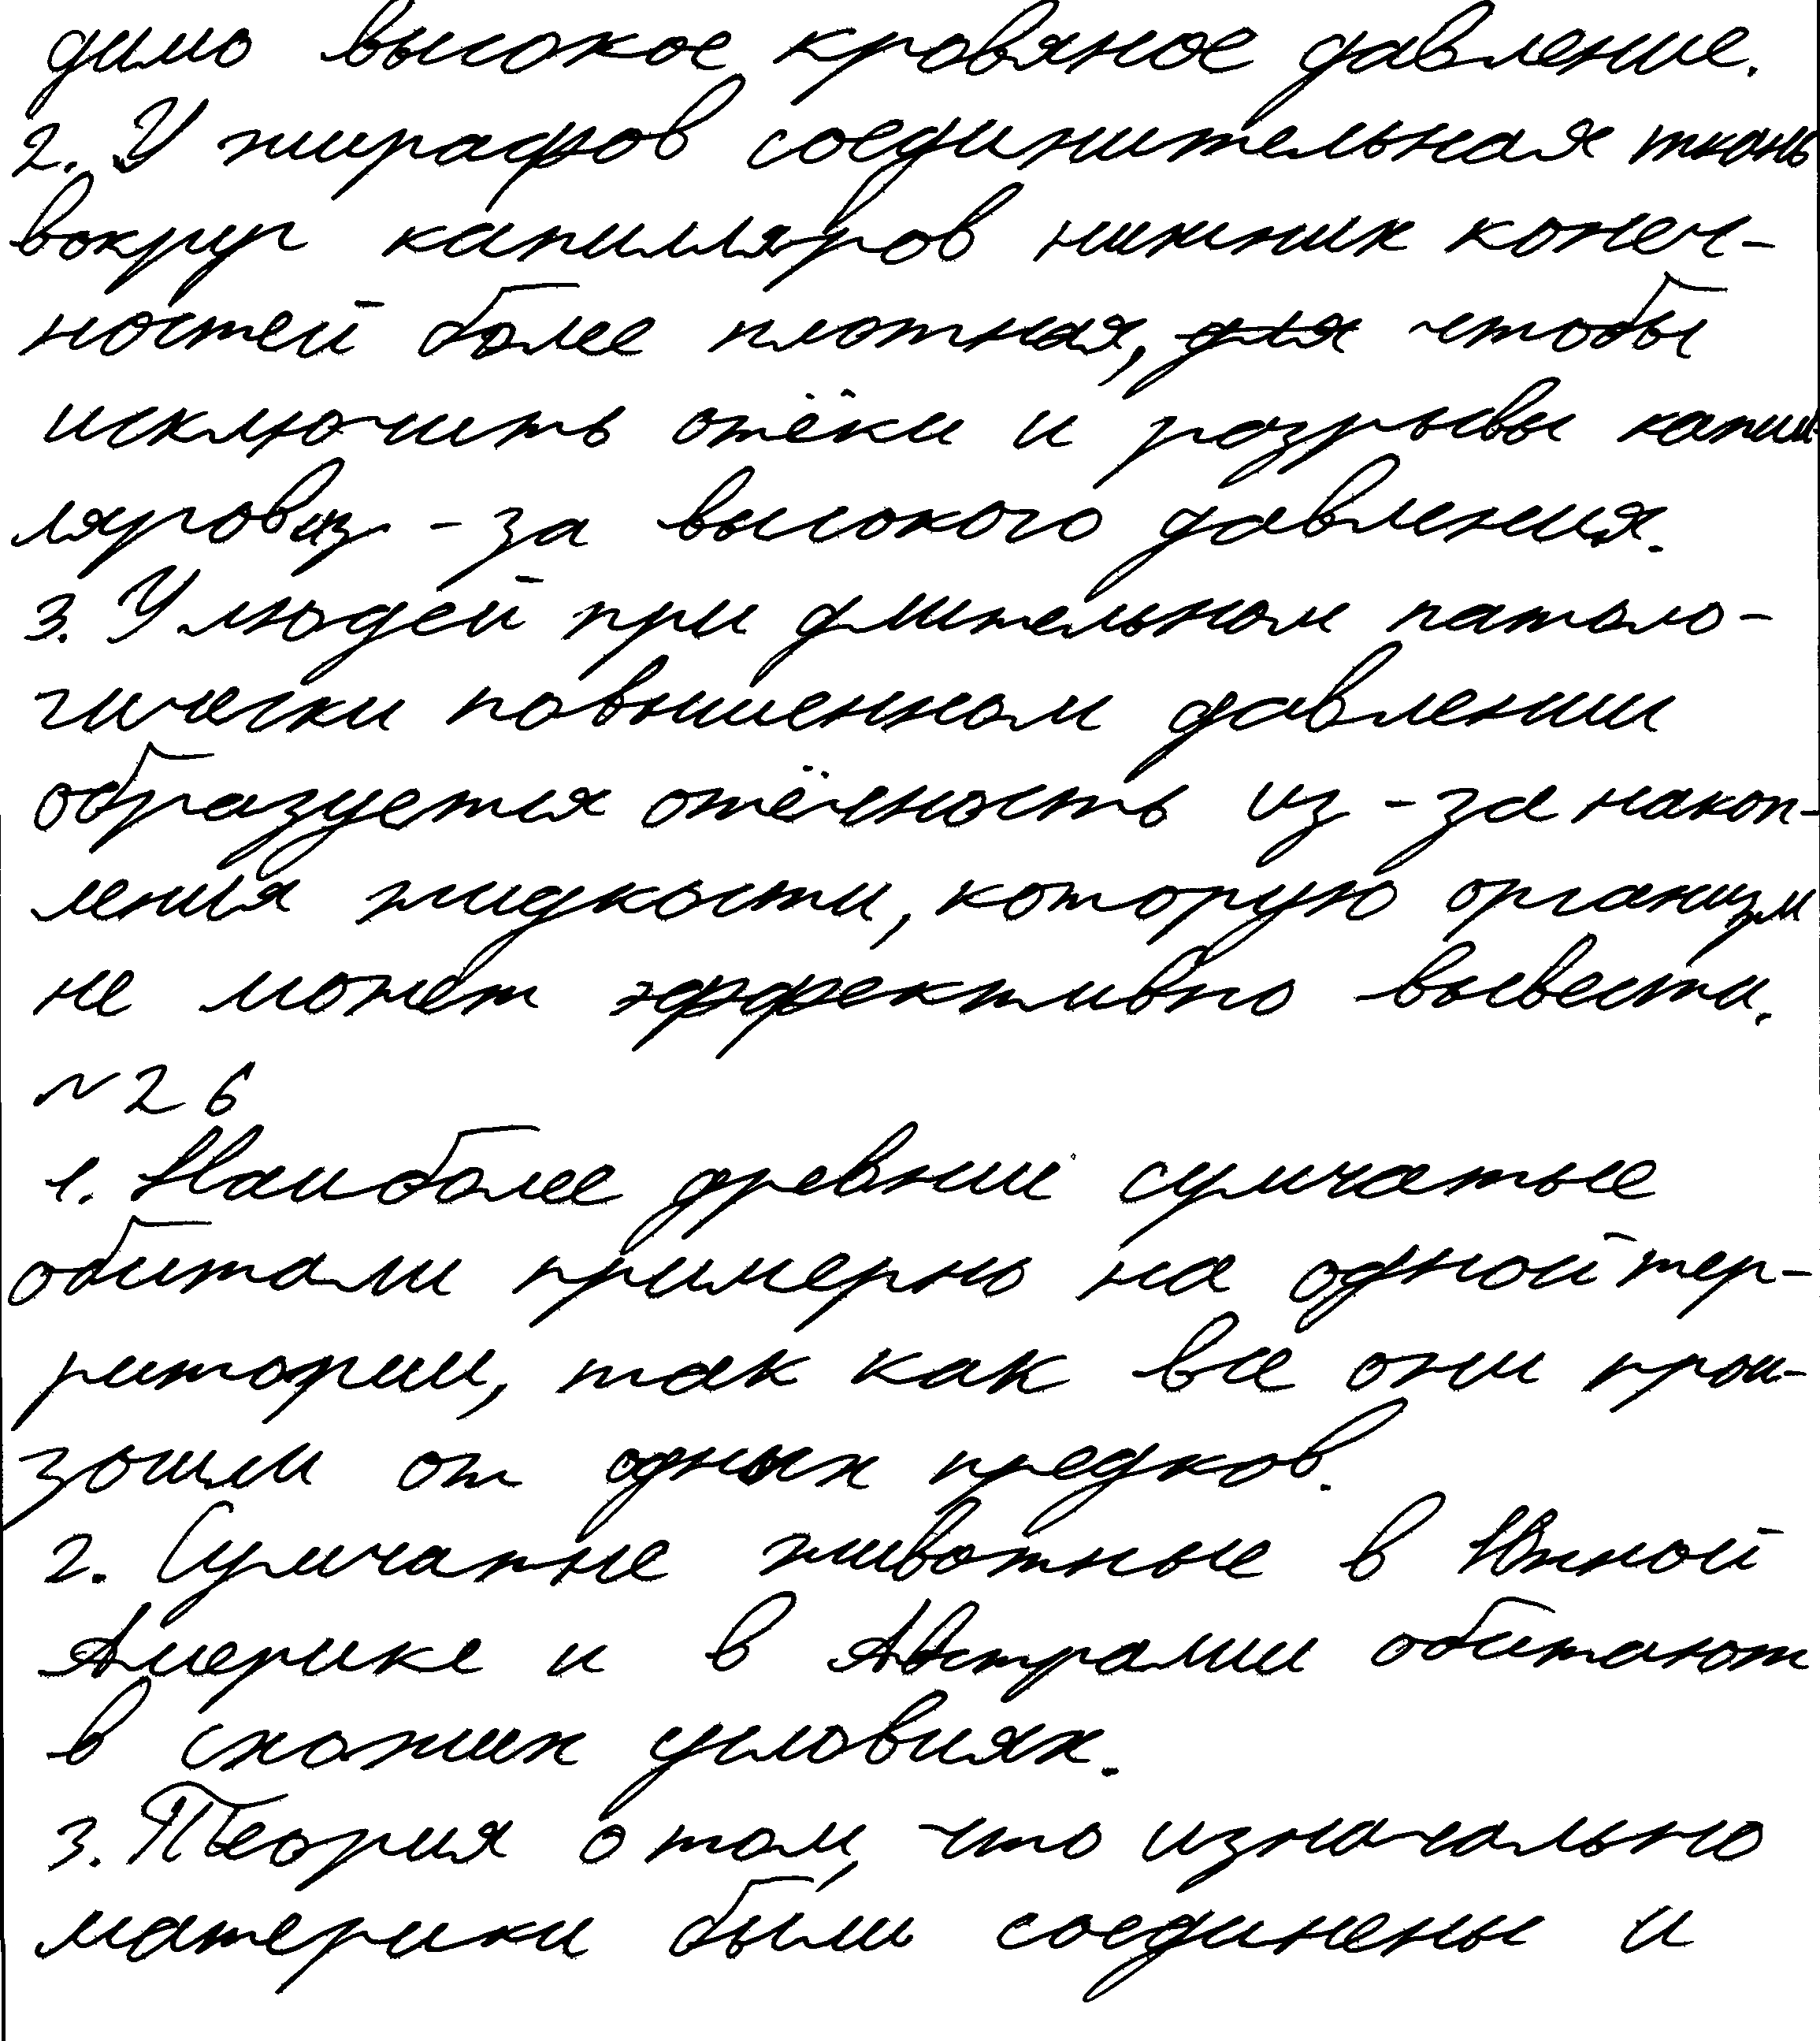 димо высокое кровяное давление.
2. У жирафов соединительная ткань
вокруг капилляров нижних конеч-
ностей более плотная, для чтобы
исключить отёки и разрывы капил-
ляров из-за высокого давления.
3. У людей при длительном патоло-
гически повышенном давлении
образуется отёчность из-за накоп-
ления жидкости, которую организм
не может эффективно вывести.
№26
1. Наиболее древние сумчатые
обитали примерно на одной тер-
ритории, так как все они прои-
зошли от одних предков.
2. Сумчатые животные в Южной
Америке и в Австралии обитают
в схожих условиях.
3. Теория о том, что изначально
материки были соединены и